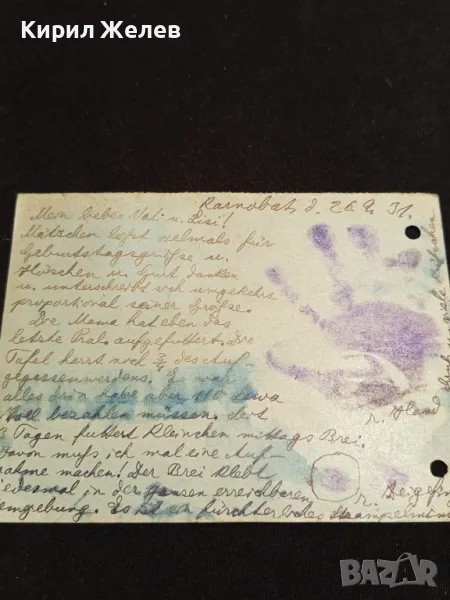 Кирил Желев
Karnobat, d. 26.9.31.
Mein liebes Vati u. Lisi!
Mätzchen läßt vielmals für
Geburtstagsgrüße u.
Höschen u. Gurt danken
u. unterschreibt sich umgekehrt
proportional seiner Größe.
Die Mama hat eben das
letzte Mal aufgefuttert. Die
Tafel harrt noch 3/4 des Auf-
gegessenwerdens. Es war
alles drin habe aber 110 Lewa
Zoll bezahlen müssen. Seit
Tagen futtert Kleinchen mittags Brei.
davon muß ich mal eine Auf-
nahme machen. Der Brei klebt
jedesmal in der ganzen erreichbaren
Umgebung. Es ist ein fürchterliches
r. Hand
r. Zeigef
BAZAR